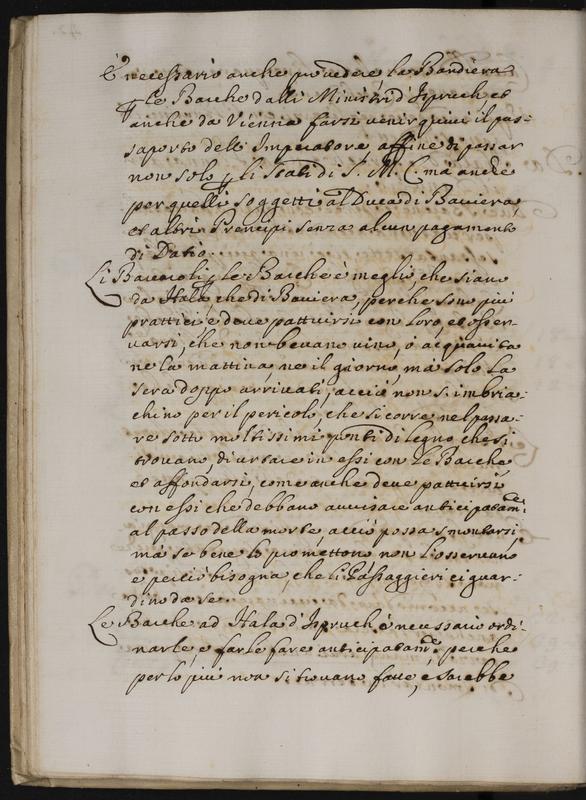 È necessario anche provedere la Bandiera
p le Barche dalli Ministri d'Ispruch, et
anche da Vienna farsi venir quivi il pas-
saporto dell Imperatore, affine di passar
non solo p li Stati di S. M. C. mà anche
per quelli soggetti al Duca di Baviera,
et altri Prencipi senza alcun pagamento
di Datio.
Li Barcaroli p le Barche è meglio che siano
da Hala, che di Baviera, perche sono piú
prattici, e deve pattuirsi con loro, et osser-
varsi, che non bevano vino, ò acquavita
ne la mattina, ne il giorno, ma solo la
sera doppo arrivati, acciò non s'imbria-
chino per il pericolo, che si corre nel passa-
re sotto moltissimi ponti di legno che si
trovano, di urtare in essi con le Barche
et affondarsi, come anche deve pattuirsi
con essi che debbano avvisare anticipatamte
al passo della morte, acciò possa smontarsi
mà se bene lo promettono non l'osservano
e perciò bisogna, che li Passaggieri ci guar-
dino da se.
Le Barche ad Hala d'Ispruch è necessario ordi-
narle, e farle fare anticipatamte perche
per lo più non si trovano fatte, e sarebbe